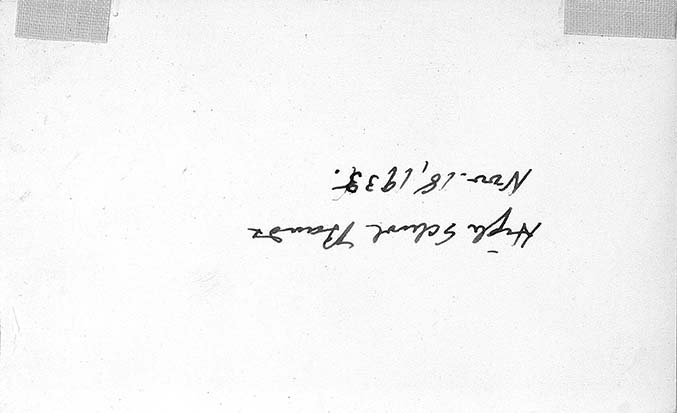 High School Bands
Nov. 18, 1935.